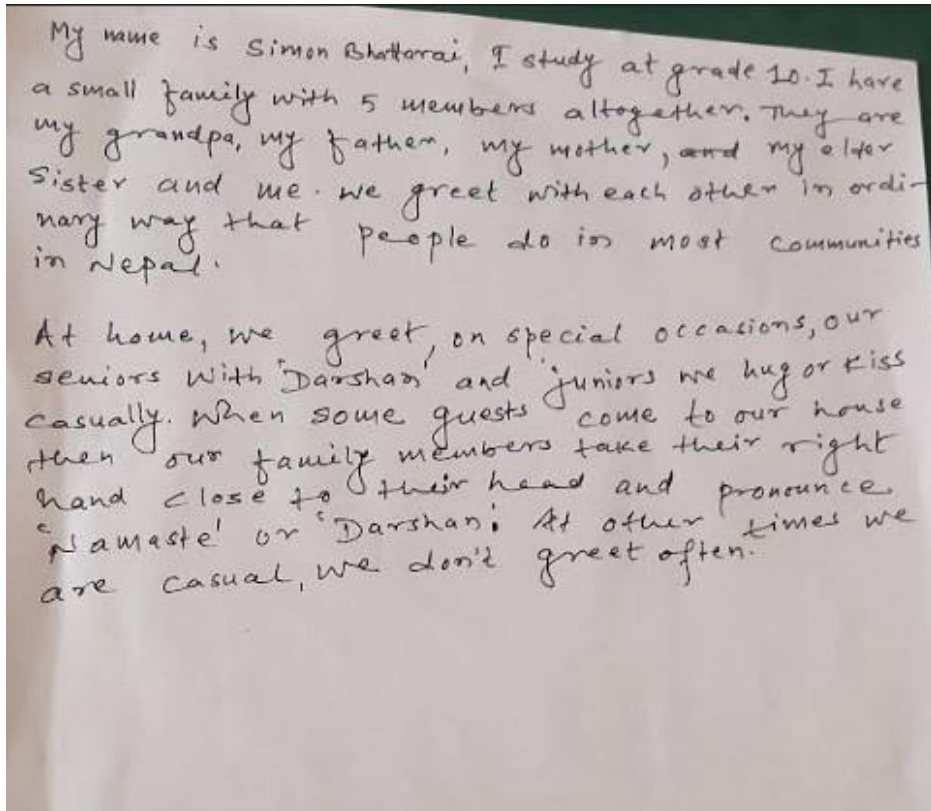 My name is Simon Bhattarai, I study at grade 10. I have
a small family with 5 members altogether. They are
my grandpa, my father, my mother, and my elder
Sister and me. we greet with each other in ordi-
nary way that people do in most communities
in Nepal.
At home, we greet, on special occasions, our
seniors with 'Darshan' and juniors we hug or kiss
casually. When some guests come to our house
then our family members take their right
hand close to their head and pronounce
'Namaste' or 'Darshan'. At other times we
are casual, we don't greet often.